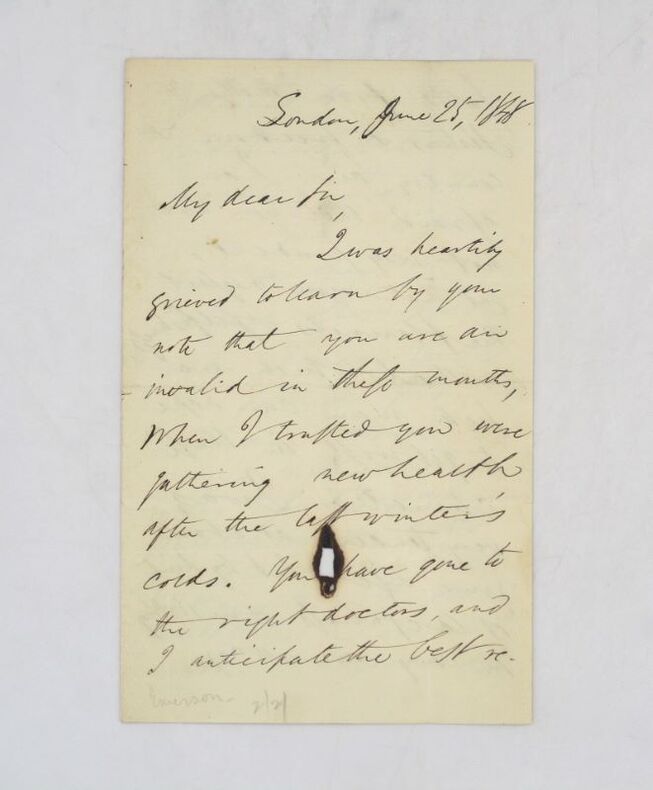 London, June 25, 1848
My dear Sir,
I was heartily
grieved to learn by your
note that you are an
invalid in these months,
when I trusted you were
gathering new health
after the last winter's
colds. You have gone to
the right doctors, and
I anticipate the best re-
Emerson